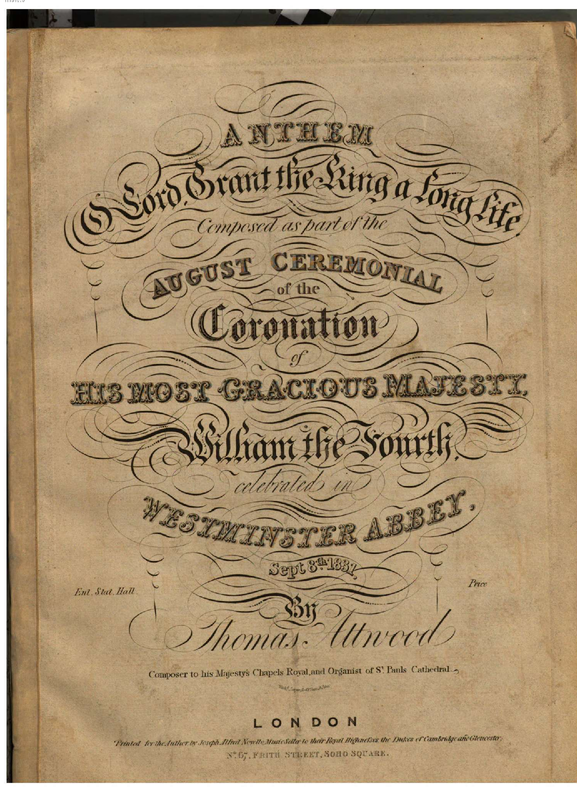 ANTHEM
O Lord, Grant the King a Long Life.
Composed as part of the
AUGUST CEREMONIAL
of the
Coronation
of
HIS MOST GRACIOUS MAJESTY,
William the Fourth.
celebrated in
WESTMINSTER ABBEY,
Sept 8th 1831,
Ent. Stat. Hall.
Price
By
Thomas Attwood
Composer to his Majesty's Chapels Royal, and Organist of St Pauls Cathedral.
LONDON
Printed for the Author by Joseph Alfred Novello Music Seller to their Royal Highnesses the Dukes of Cambridge and Glocester,
No 67, FRITH STREET, SOHO SQUARE.